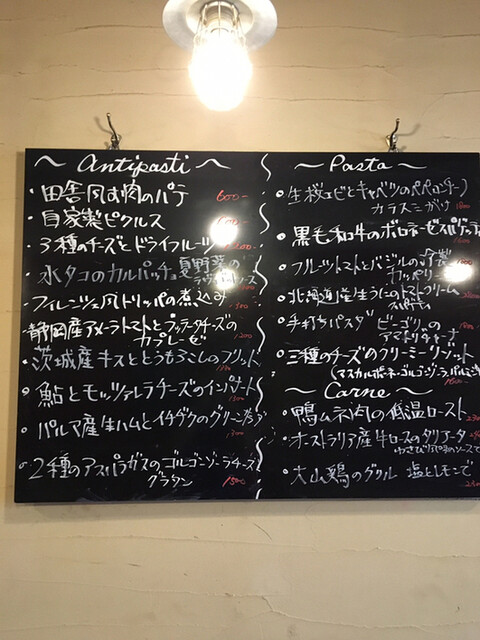 ～ Antipasti ～
・田舎風お肉のパテ 600-
・自家製ピクルス
・3種のチーズとドライフルーツ
・水タコのカルパッチョ 夏野菜の
・フィレンツェ風トリッパの煮込み
静岡産アメーラトマトとブッラータチーズの
カプレーゼ 1200
・茨城産キスととうもろこしのフリット
・鮎とモッツァレラチーズのインパナート 1500
・パルマ産生ハムとイチヂクのグリーンサラダ 1300
・2種のアスパラガスのゴルゴンゾーラチーズ
グラタン 1500
～ Pasta ～
・生桜エビとキャベツのペペロンチーノ
カラスミがけ
・黒毛和牛のボロネーゼスパゲッティ
・フルーツトマトとバジルの冷製
カッペリーニ
・北海道産生うにのトマトクリーム
スパゲティ
・手打ちパスタ ビーゴリ の
アマトリチャーナ
・三種のチーズのクリーミーリゾット
(マスカルポーネ・ゴルゴンゾーラ・パルミジャーノ
～ Carne ～
・鴨ムネ肉の低温ロースト
・オーストラリア産牛ロースのタリアータ
わさび風味のソースで
・大山鶏のグリル 塩とレモンで